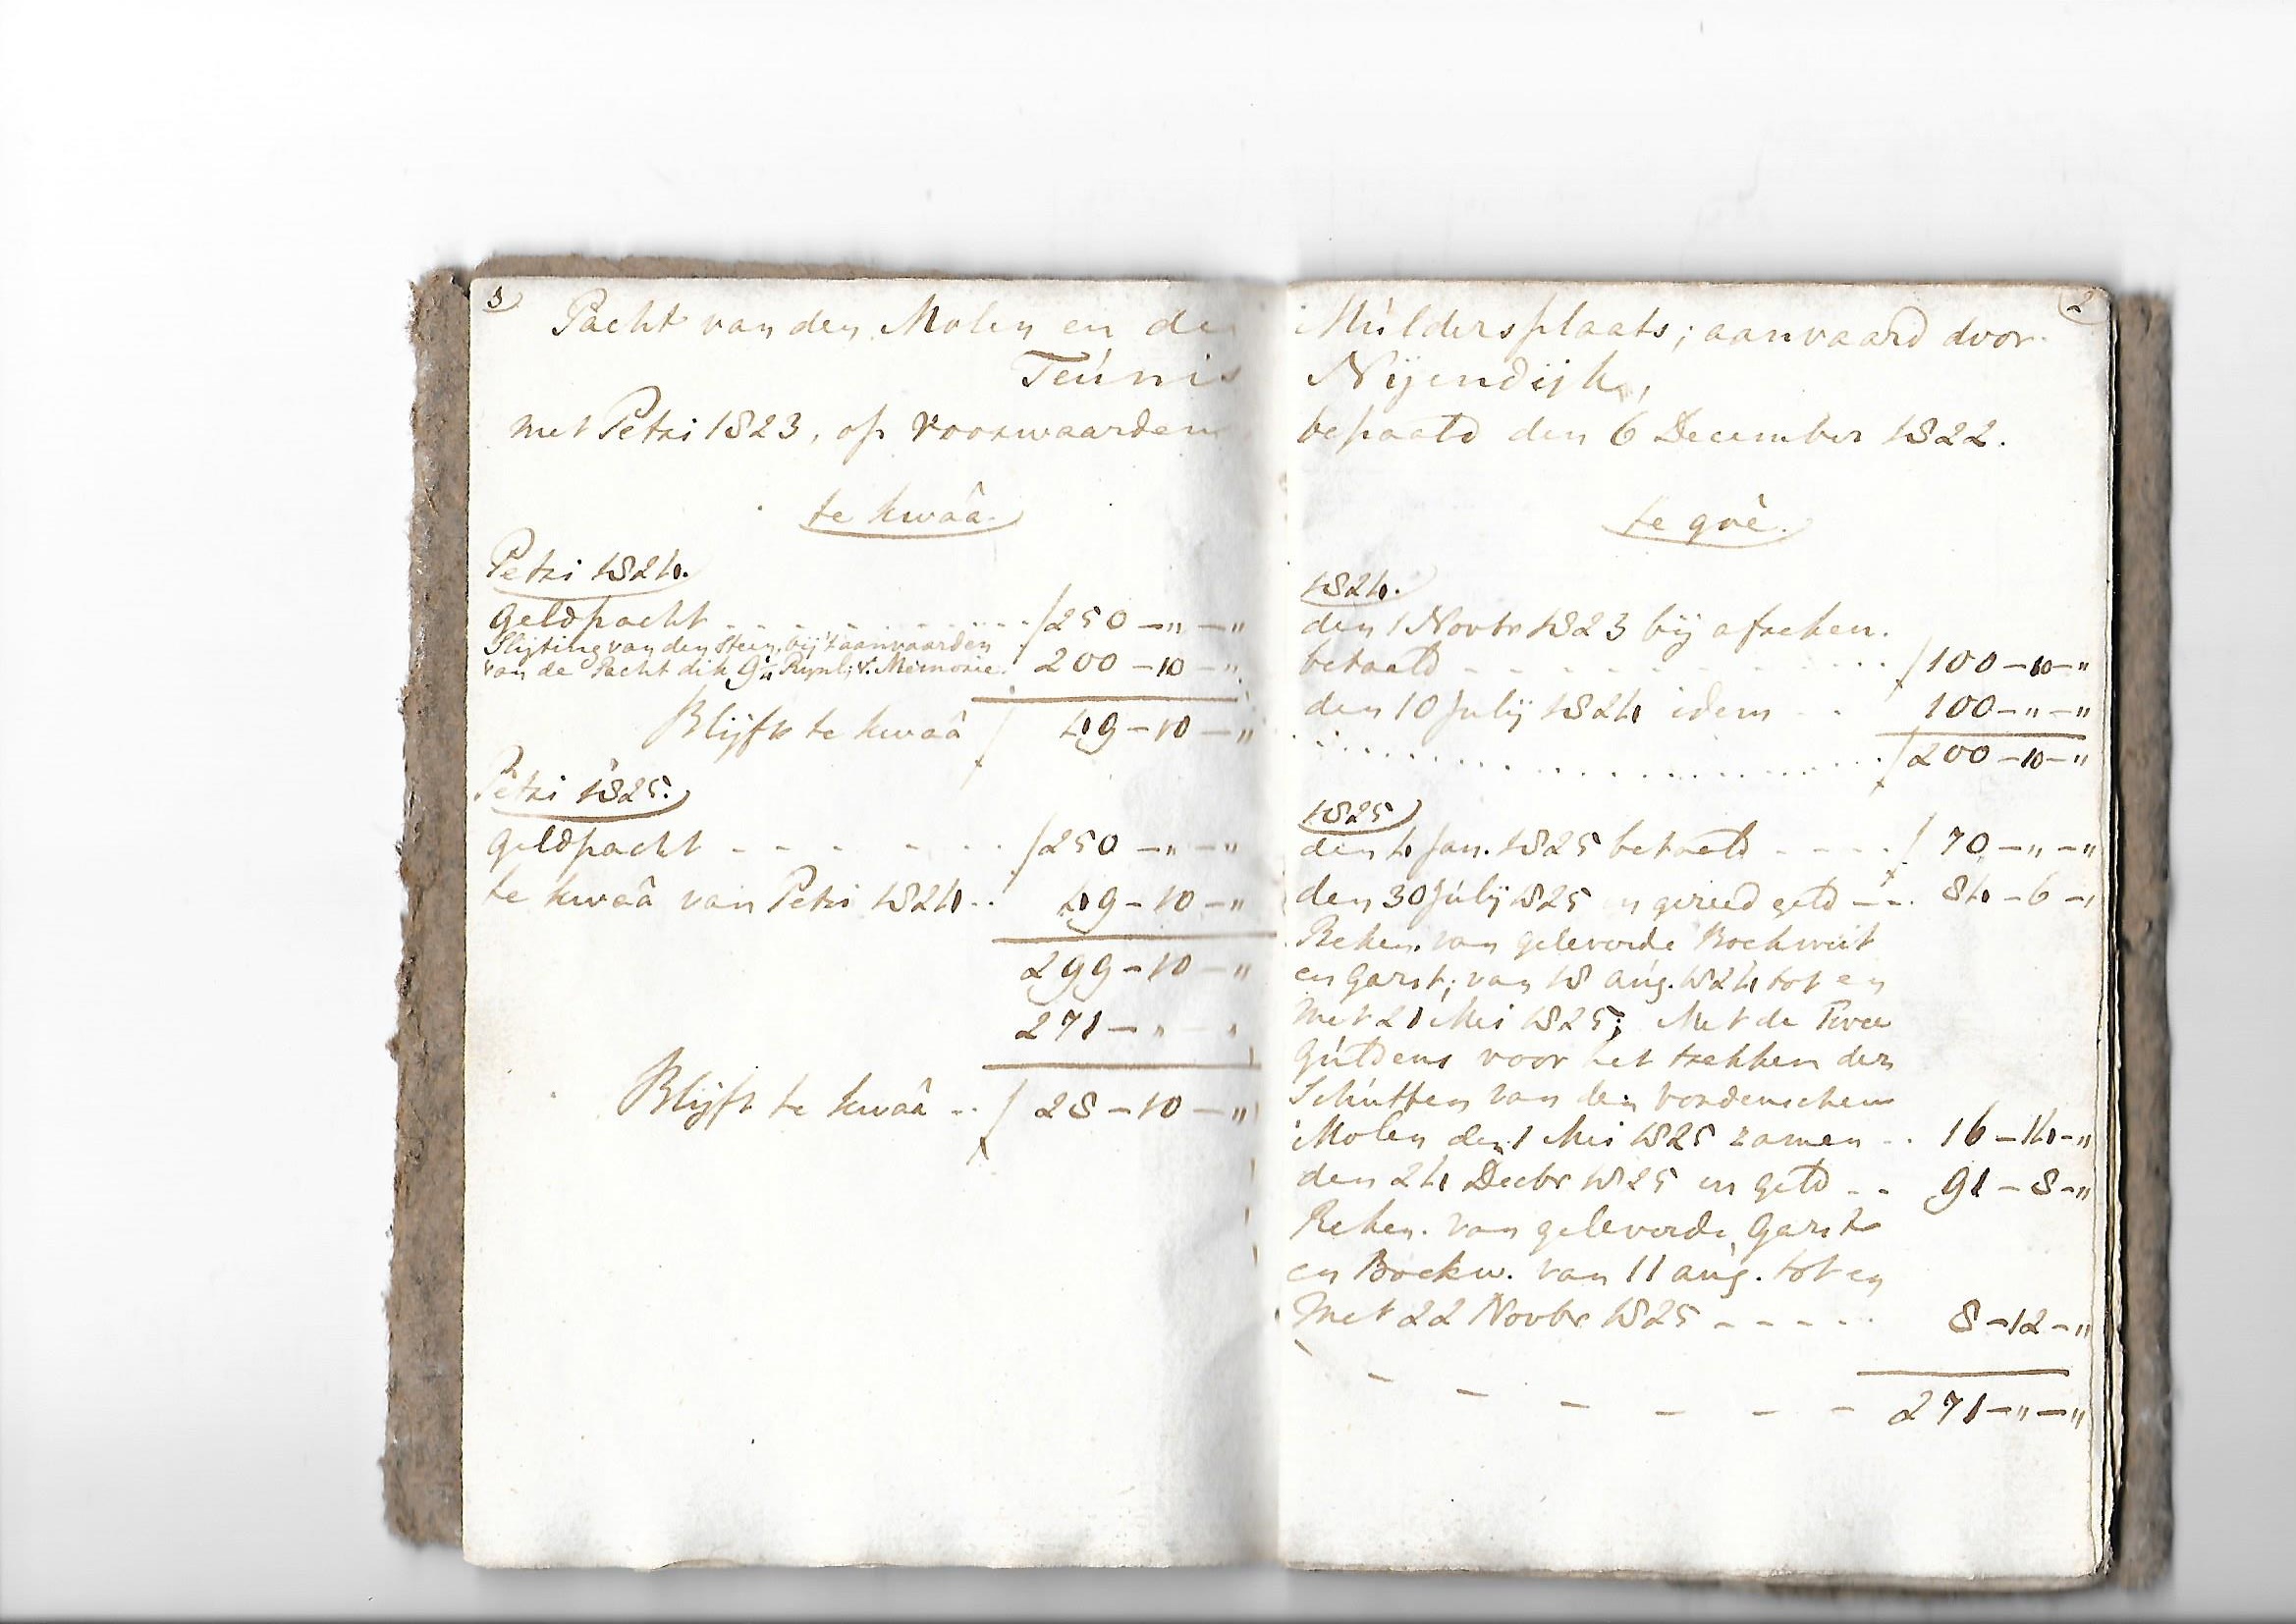 3
Pacht van den Molen en de
Teúnis
met Petri 1823, op voorwaarden
te kwââ
Petri 1824.
geldpacht - - - - - ƒ 250 - " - "
Slijting van den Steen, bij 't aanvaarden
van de Pacht dik 9 Rynl: v. Memorie. 200 - 10 - "
Blijft te kwââ ƒ 49 - 10 - "
Petri 1825.
geldpacht - - - - - - ƒ 250 - " - "
te kwââ van Petri 1824 - - 49 - 10 - "
299 - 10 - "
271 - " - "
Blijft te kwââ - - ƒ 28 - 10 - "
2
Múldersplaats; aanvaard door
Nijendijk,
bepaald den 6 December 1822.
te goê.
1824.
den 1 Novbr 1823 bij afreken.
betaald - - - - - ƒ 100 - 10 - "
den 10 Julij 1824 idem - - 100 - " - "
. . . . . . . . . . ƒ 200 - 10 - "
1825
den 4 Jan. 1825 betaald - - - - ƒ 70 - " - "
den 30 Júlij 1825 in gereed geld - - 84 - 6 - "
Reken. van geleverde Boekweit
en Garst; van 18 aúg. 1824 tot en
met 21 Mei 1825; Met de Twee
Gúldens voor het trekken der
Schútten van den vordenschen
Molen den 1 Mei 1825 zamen - - 16 - 14 - "
den 24 Decbr 1825 in geld - - 91 - 8 - "
Reken. van geleverde Garst
en Boekw. van 11 aúg. tot en
Met 22 Novbr 1825 - - - - - 8 - 12 - "
- - - - - - - 271 - " - "